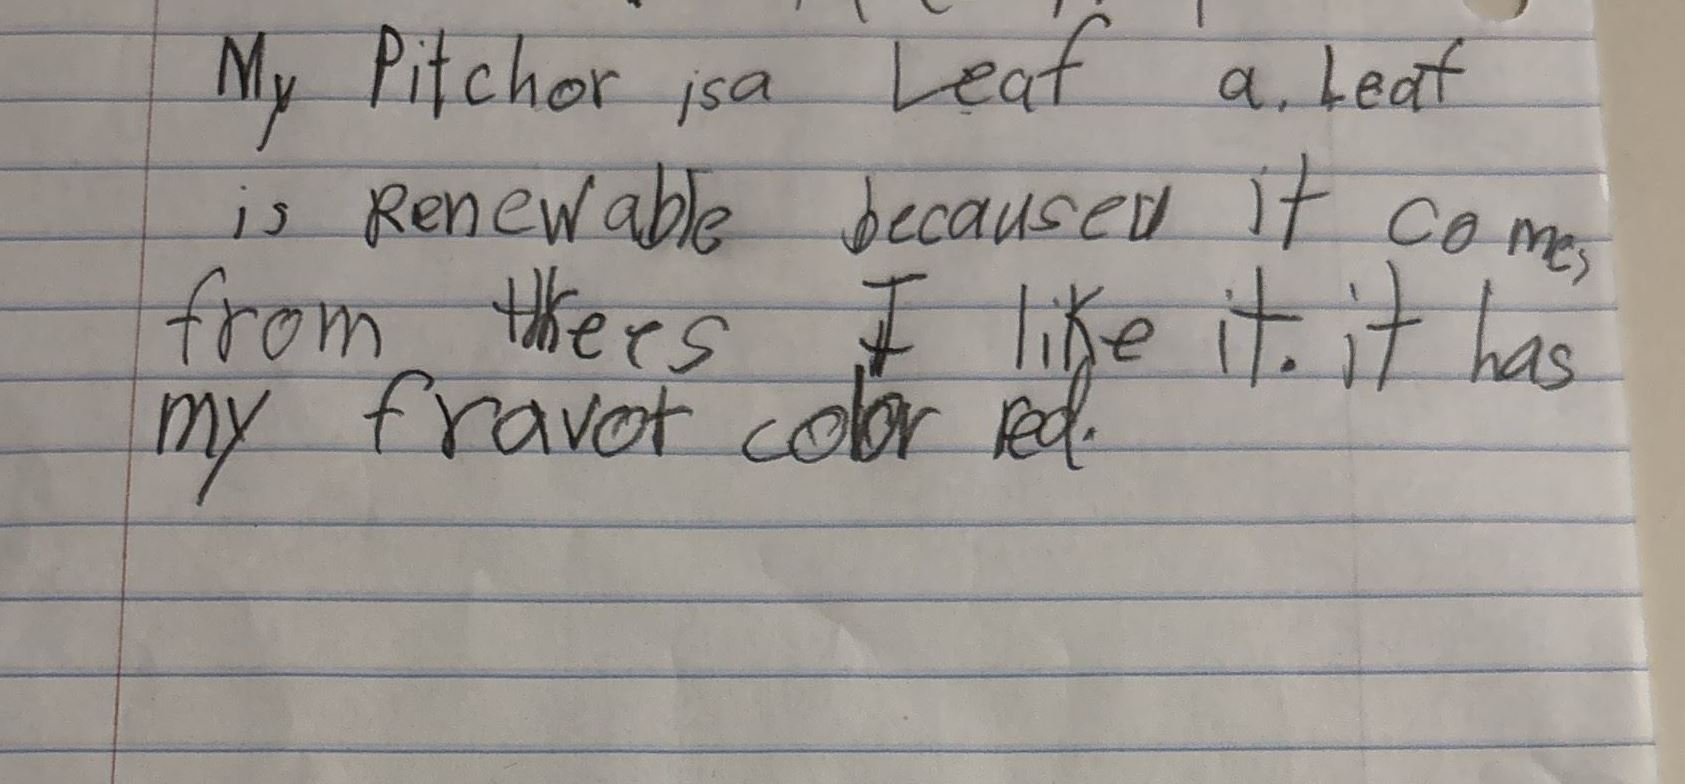 My Pitchor is a Leaf a. Leaf
is Renewable becauseu it comes
from thers I like it. it has
my fravot color red.